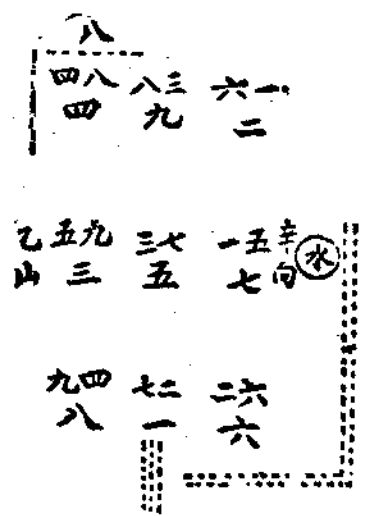 八
四八 八三 六一
四 九 二
乙 五九 三七 一五 辛 水
山 三 五 七 向
九四 七二 二六
八 一 六